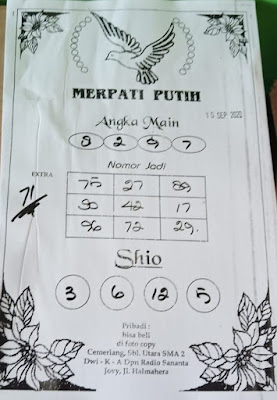 MERPATI PUTIH
19 SEP 2020
Angka Main
8 2 9 7
Nomor Jadi
EXTRA
71
75 27 89
90 42 17
96 72 29.
Shio
3 6 12 5
Pribadi :
bisa beli
di foto copy
Cemerlang, Sbl. Utara SMA 2
Dwi - K - A Dpn Radio Sananta
Jovy, Jl. Halmahera